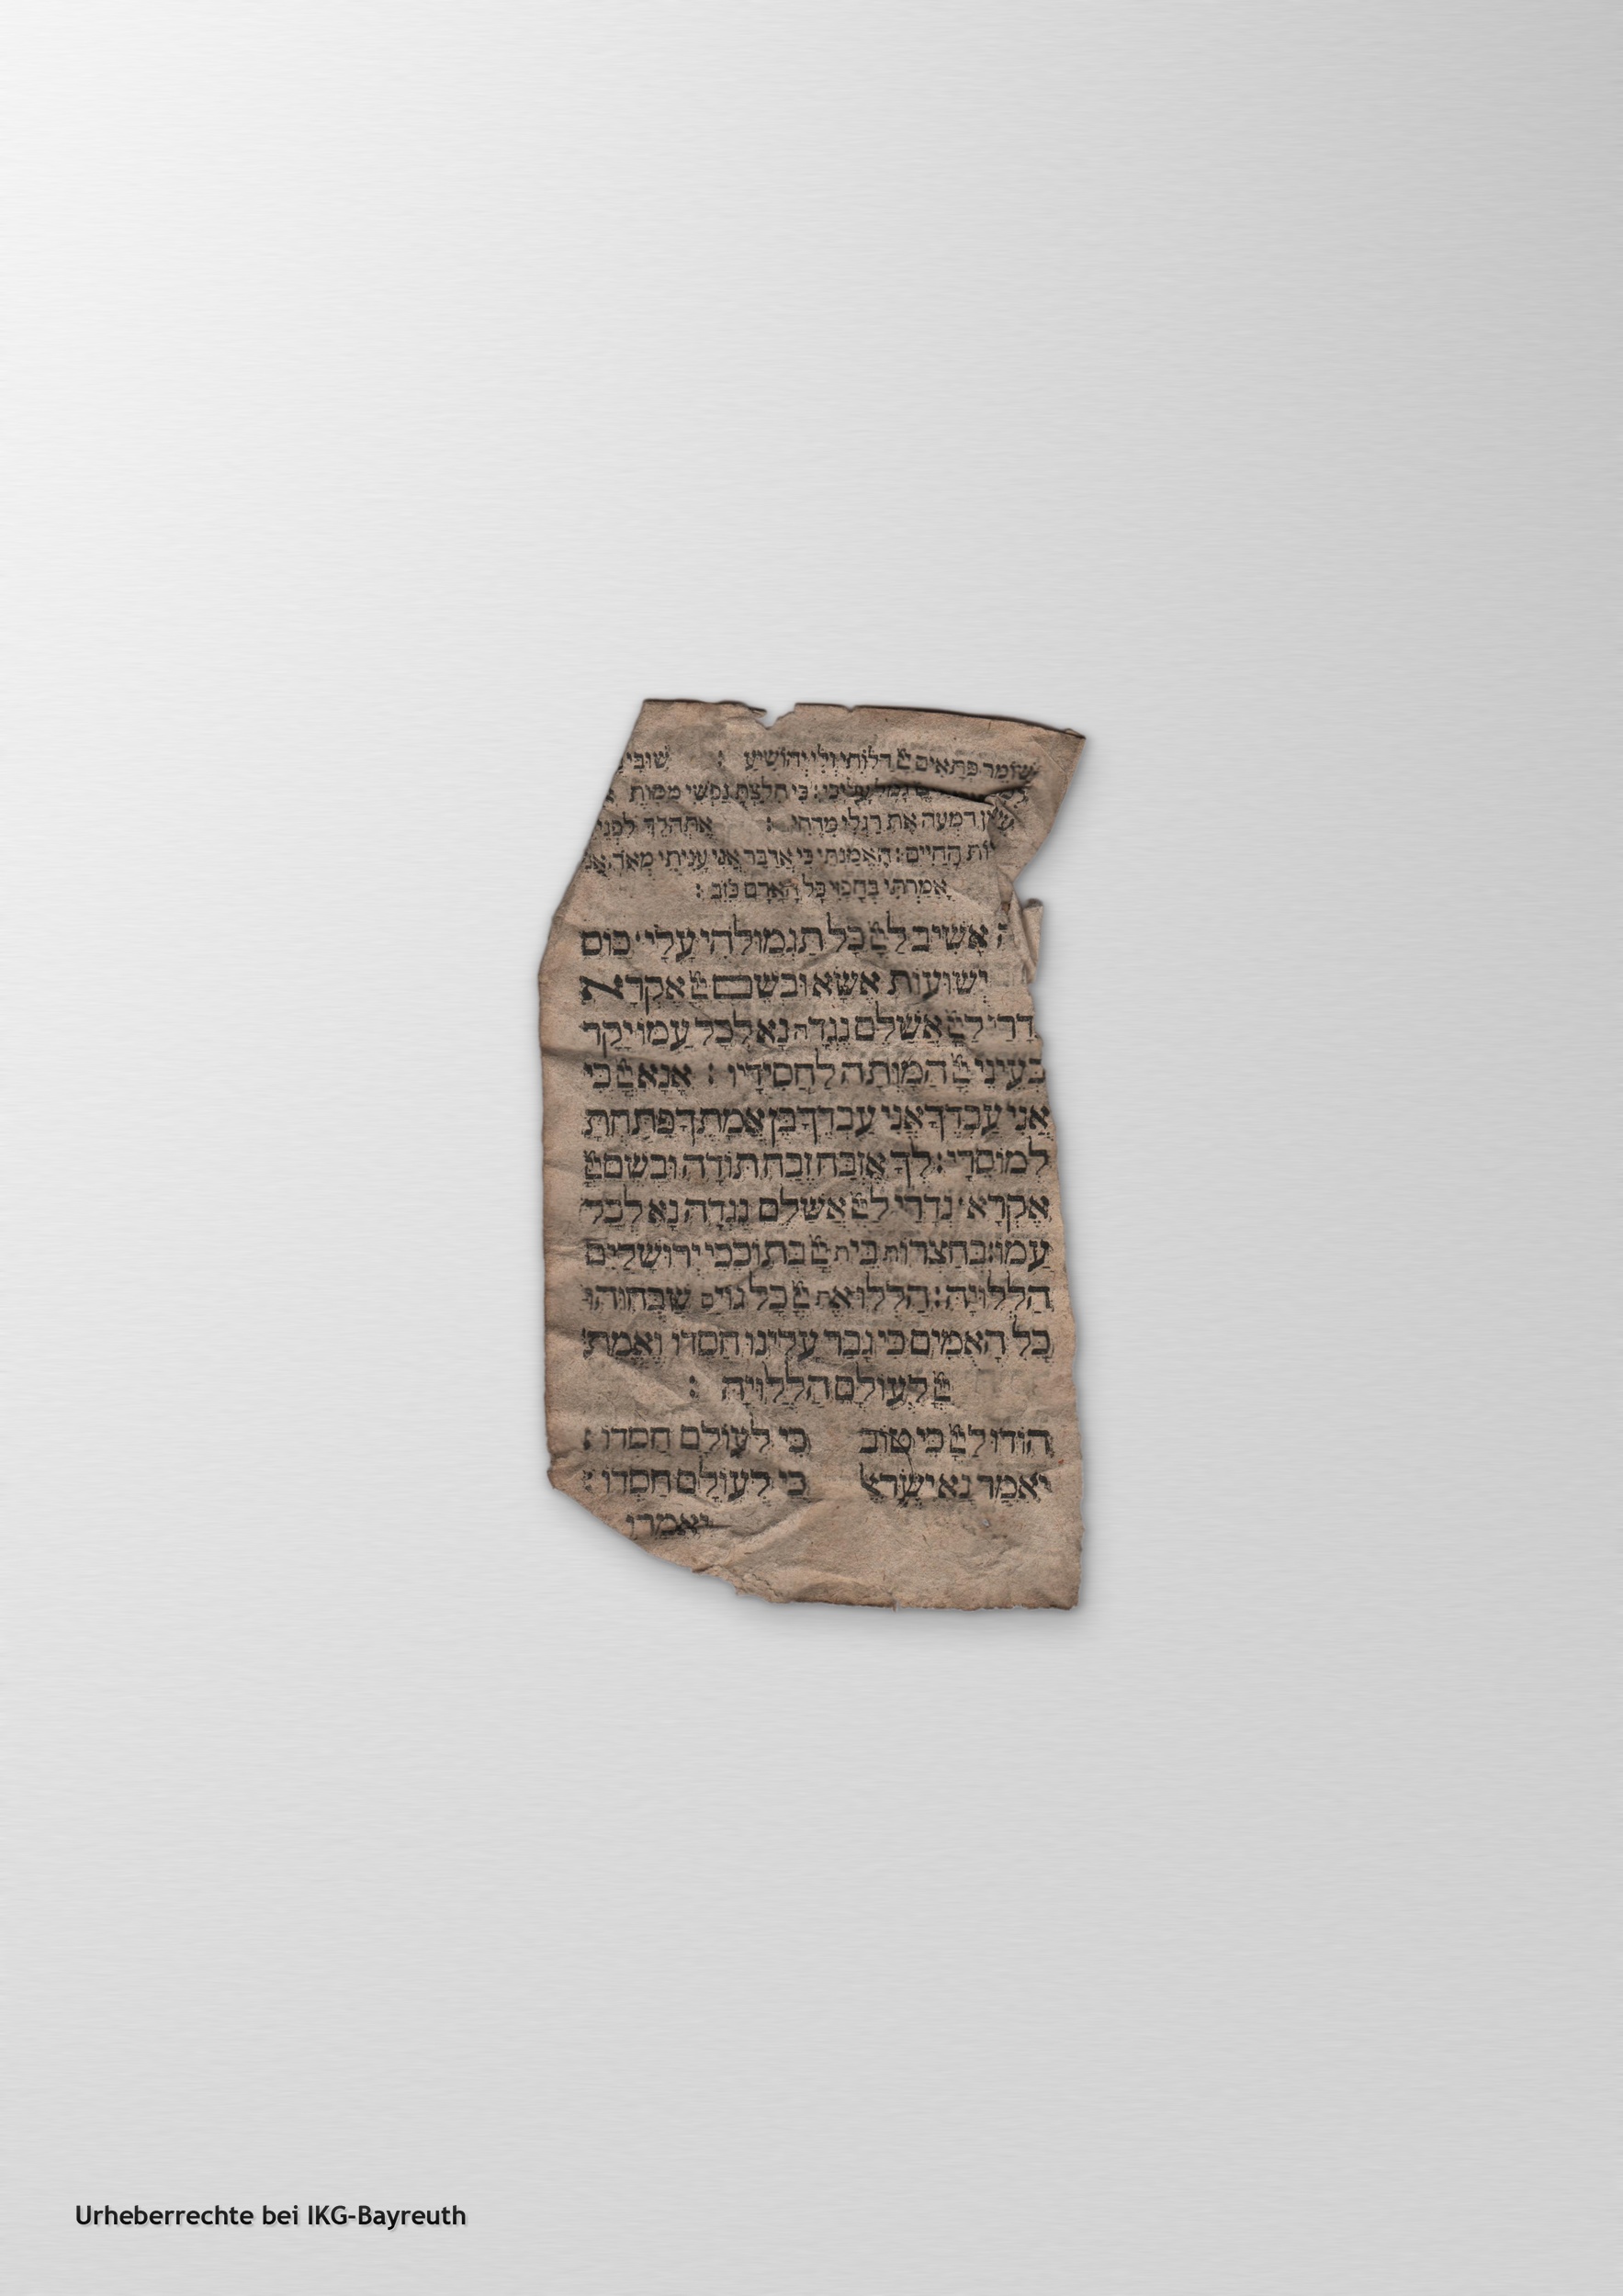 שומר פתאים יי דלותי ולי יהושיע : שובי
גמל עליכי: כי חלצת נפשי ממות
דמעה את רגלי מדחי : אתהלך לפני
החיים: האמנתי כי אדבר אני עניתי מאד אני
אמרתי בחפזי כל האדם כוזב :
אשיב ליי כל תגמולוהי עלי כוס
ישועות אשא ובשם יי אקרא
נדרי ליי אשלם נגדה נא לכל עמו יקר
בעיני יי המותה לחסידיו : אנא יי כי
אני עבדך אני עבדך בן אמתך פתחת
למוסרי: לך אזבח זבח תודה ובשם יי
אקרא נדרי ליי אשלם נגדה נא לכל
עמו: בחצרות בית יי בתוככי ירושלים
הללויה: הללו את יי כל גוים שבחוהו
כל האמים כי גבר עלינו חסדו ואמת
יי לעולם הללויה :
הודו ליי כי טוב כי לעולם חסדו :
יאמר נא ישראל כי לעולם חסדו :
יאמרו
Urheberrechte bei IKG-Bayreuth